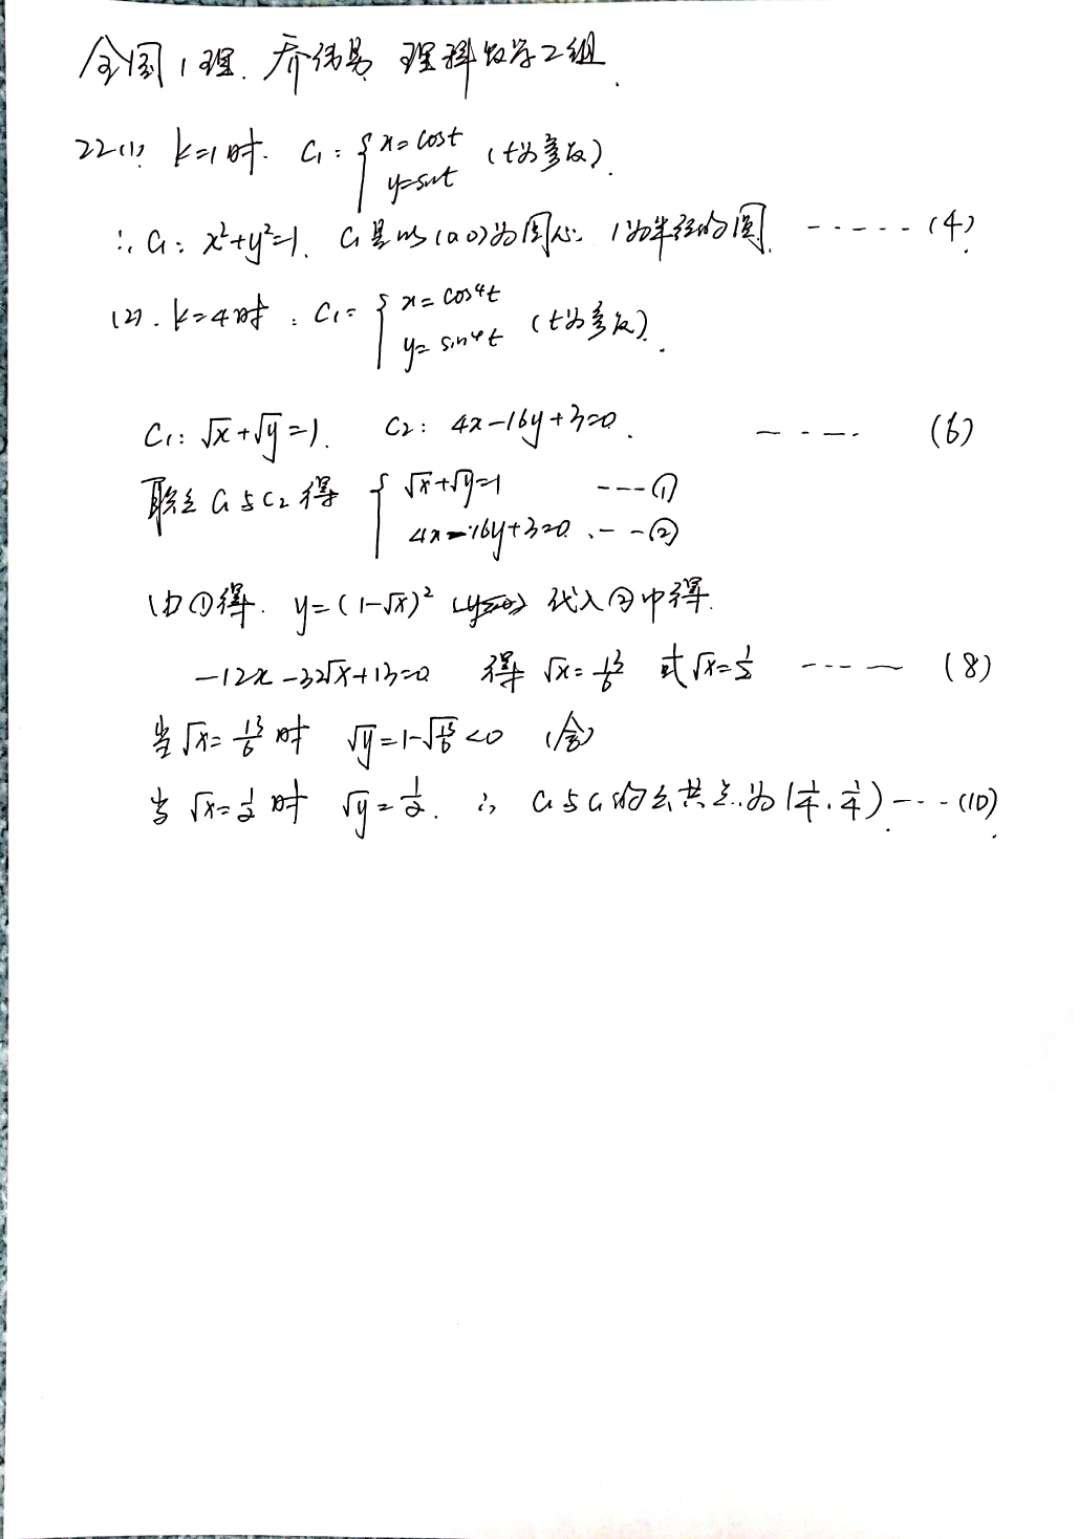 全国1理. 乔伟易 理科数学2组.
22(1) k=1时. C₁: { x=cost y=sint (t为参数).
∴ C₁: x²+y²=1. C₁是以(0.0)为圆心. 1为半径的圆. ------ (4)
(2). k=4时: C₁= { x=cos⁴t y=sin⁴t (t为参数).
C₁: √x+√y=1. C₂: 4x-16y+3=0. ---- (6)
联立C₁与C₂得 { √x+√y=1 ----① 4x-16y+3=0. ---②
由①得. y=(1-√x)² 代入②中得.
-12x-32√x+13=0 得 √x=13/6 或√x=1/2 ---- (8)
当√x=13/6时 √y=1-√13/6<0 (舍)
当√x=1/2时 √y=1/2. ∴ C₁与C₁的公共点.为(1/4.1/4)---(10)